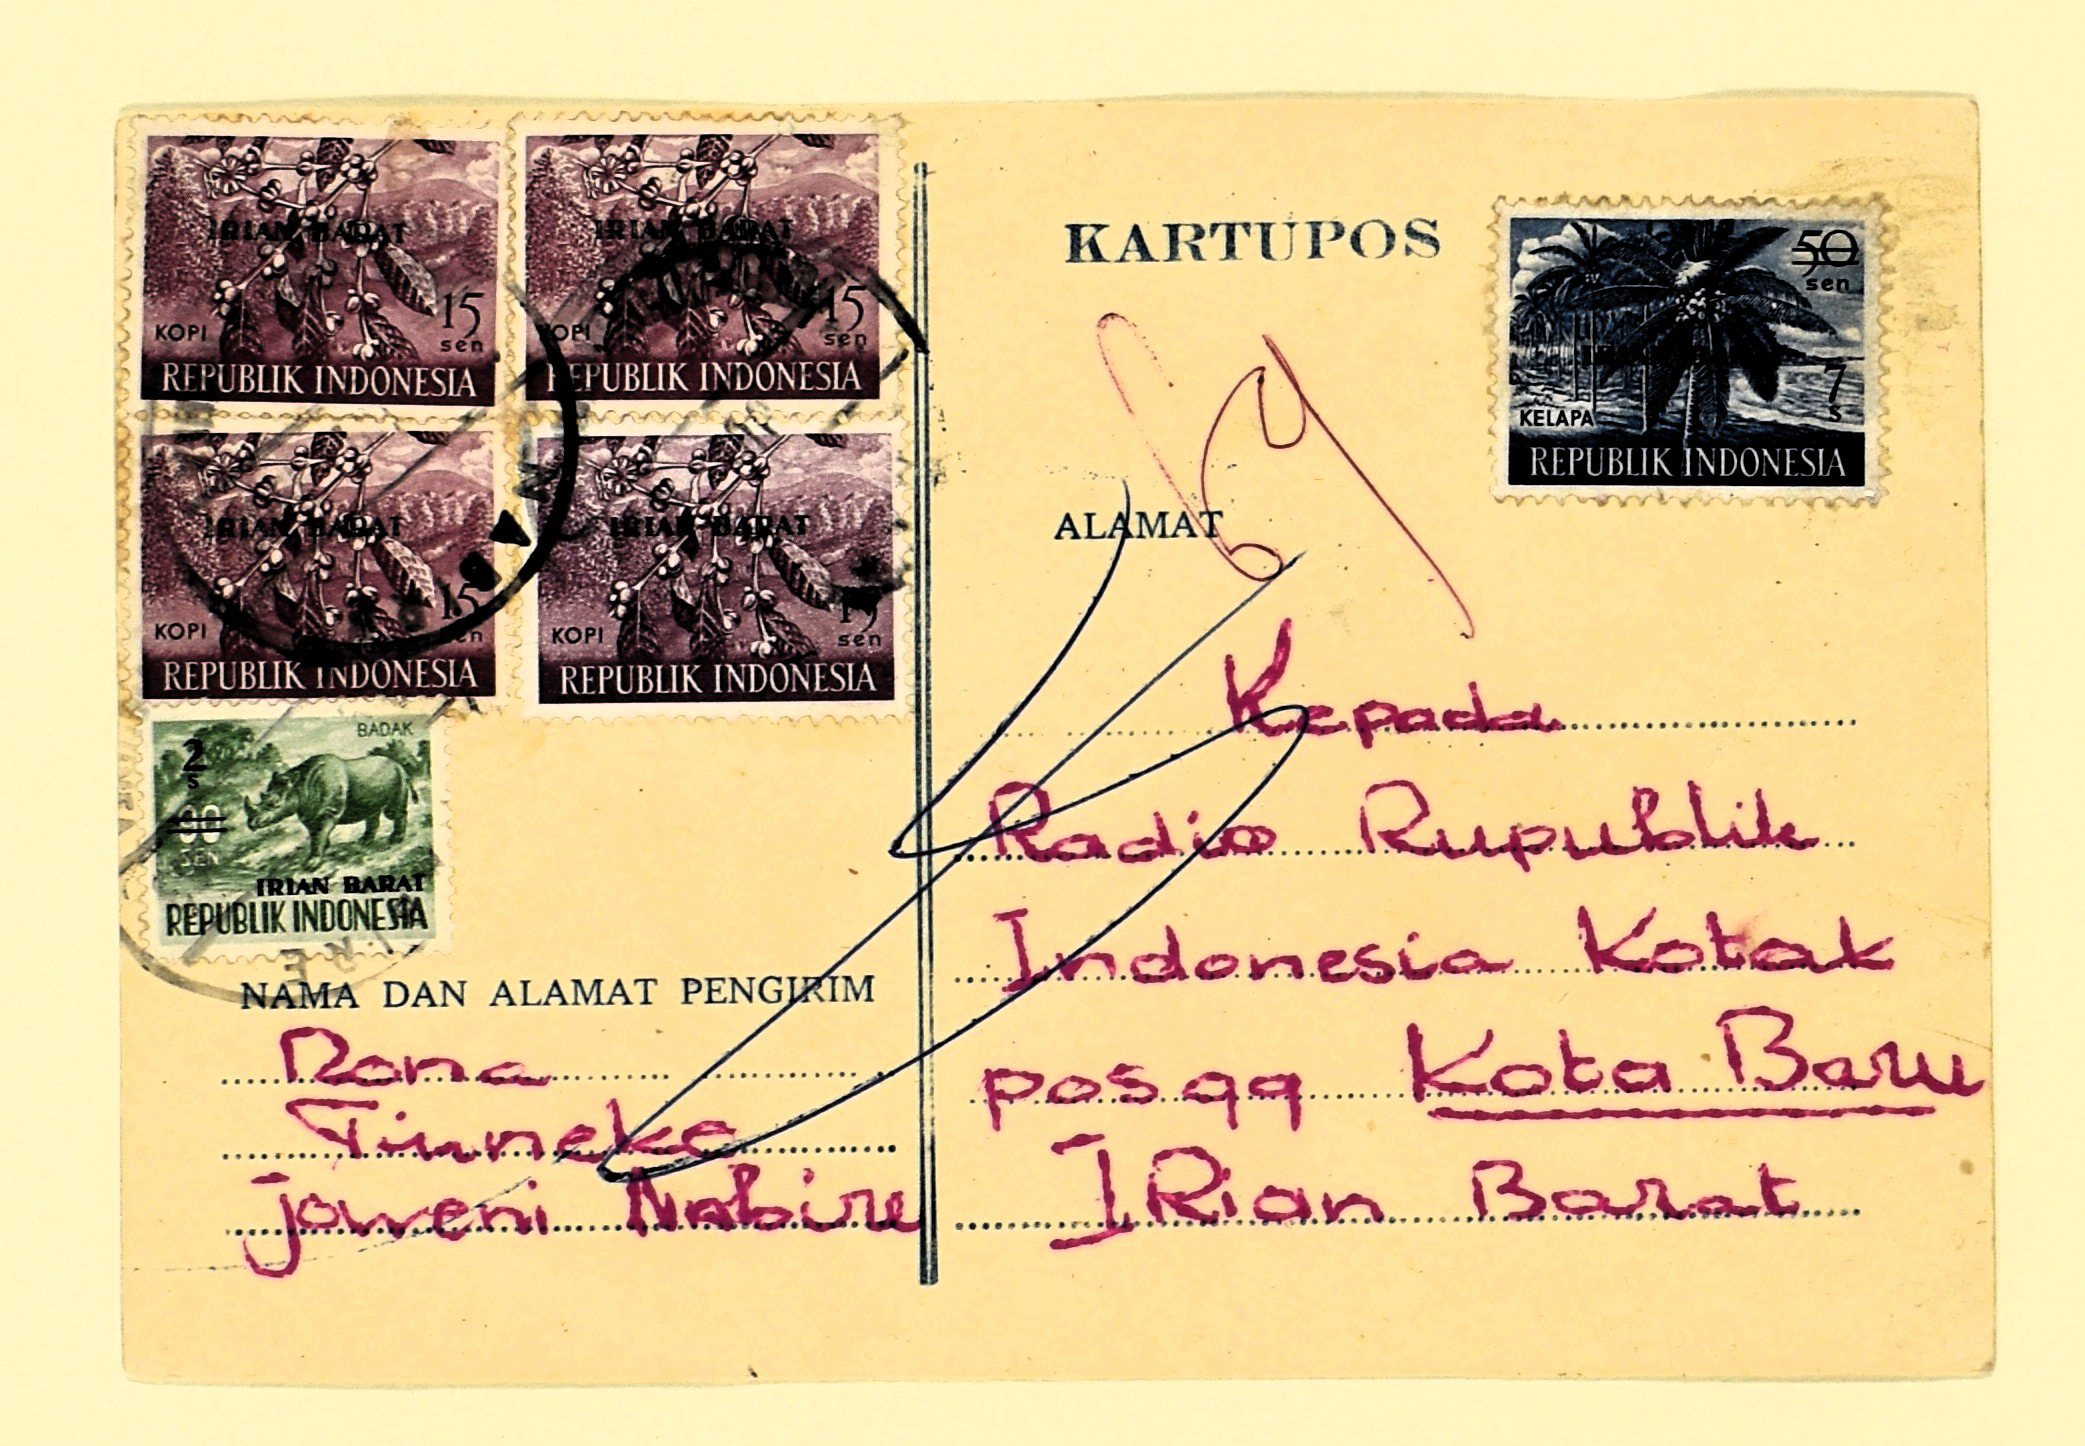 IRIAN BARAT
15
sen
KOPI
REPUBLIK INDONESIA
IRIAN BARAT
15
sen
KOPI
REPUBLIK INDONESIA
IRIAN BARAT
15
sen
KOPI
REPUBLIK INDONESIA
IRIAN BARAT
15
sen
KOPI
REPUBLIK INDONESIA
BADAK
2
s
SEN
IRIAN BARAT
REPUBLIK INDONESIA
NAMA DAN ALAMAT PENGIRIM
Rona
Tinneke
joweni Nabire
KARTUPOS
50
sen
7
s
KELAPA
REPUBLIK INDONESIA
ALAMAT
Kepada
Radio Rupublik
Indonesia Kotak
pos 99 Kota Baru
IRian Barat